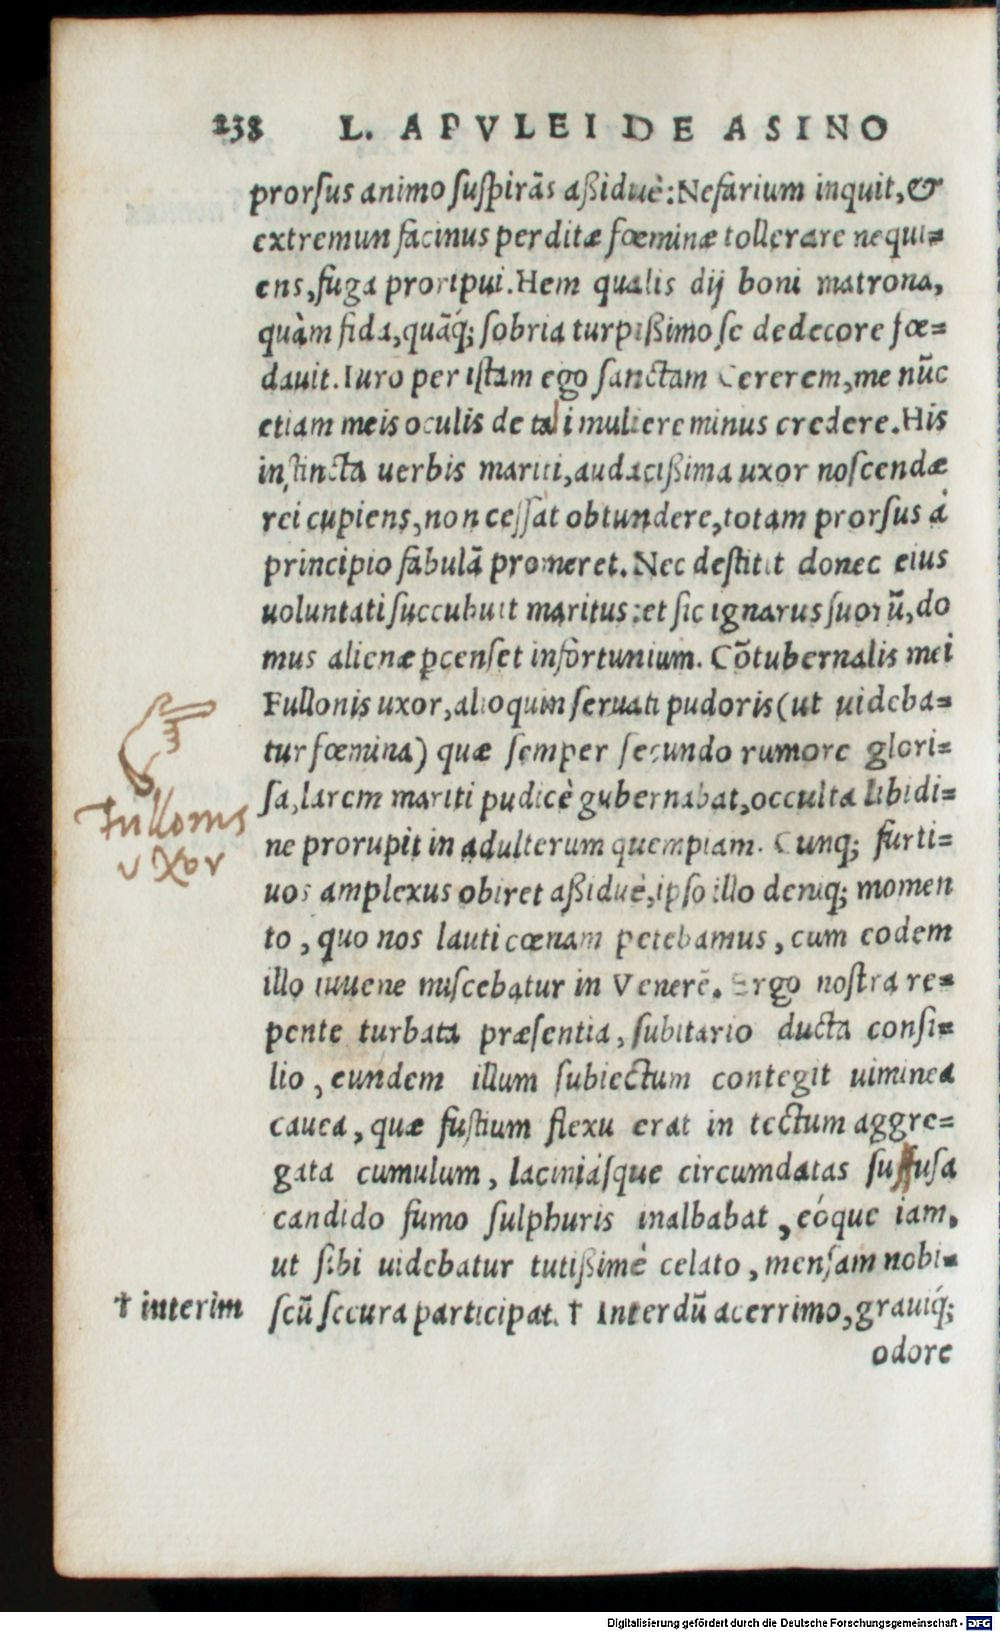 238 L. APVLEI DE ASINO
prorſus animo ſuſpirãs aßiduè: Nefarium inquit, &
extremun facinus perditæ fœminæ tollerare nequi=
ens, fuga proripui. Hem qualis dij boni matrona,
quàm fida, quãq́; ſobria turpißimo ſe dedecore fœ=
dauit. Iuro per iſtam ego ſanctam Cererem, me nũc
etiam meis oculis de tali muliere minus credere. His
inſtincta uerbis mariti, audacißima uxor noſcendæ
rei cupiens, non ceſſat obtundere, totam prorſus à
principio fabulã promeret. Nec deſtitit donec eius
uoluntati ſuccubuit maritus: et ſic ignarus ſuorũ, do
mus alienæ ꝑcenſet infortunium. Cõtubernalis mei
Fullonis uxor, alioquin ſeruati pudoris (ut uideba=
tur fœmina) quæ ſemper ſecundo rumore glori=
ſa, larem mariti pudicè gubernabat, occulta libidi=
ne prorupit in adulterum quempiam. Cunq; furti=
uos amplexus obiret aßiduè, ipſo illo deniq; momen
to, quo nos lauti cœnam petebamus, cum eodem
illo iuuene miſcebatur in Venerẽ. Ergo noſtra re=
pente turbata præſentia, ſubitario ducta conſi=
lio, eundem illum ſubiectum contegit uiminea
cauea, quæ fuſtium flexu erat in tectum aggre=
gata cumulum, laciniáſque circumdatas ſuffuſa
candido fumo ſulphuris inalbabat, eóque iam,
ut ſibi uidebatur tutißimè celato, menſam nobi=
ſcũ ſecura participat. † Interdũ acerrimo, grauiq́;
odore
Fullonis
vxor
† interim
Digitalisierung gefördert durch die Deutsche Forschungsgemeinschaft - DFG